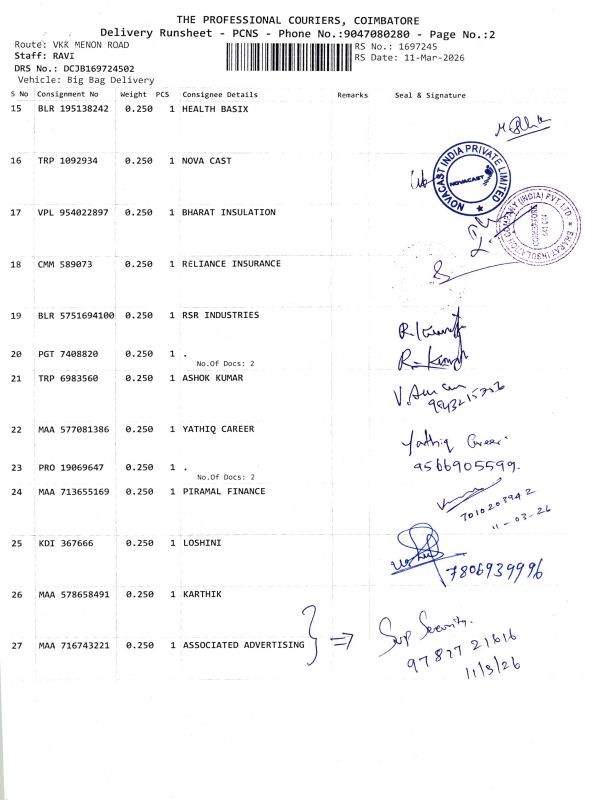 THE PROFESSIONAL COURIERS, COIMBATORE
Delivery Runsheet - PCNS - Phone No.:9047080280 - Page No.:2
Route: VKK MENON ROAD
Staff: RAVI
DRS No.: DCJB169724502
Vehicle: Big Bag Delivery
RS No.: 1697245
RS Date: 11-Mar-2026
S No Consignment No Weight PCS Consignee Details Remarks Seal & Signature
15 BLR 195138242 0.250 1 HEALTH BASIX
16 TRP 1092934 0.250 1 NOVA CAST
NOVACAST INDIA PRIVATE LIMITED
NOVACAST
17 VPL 954022897 0.250 1 BHARAT INSULATION
BHARAT INSULATION COMPANY (INDIA) PVT. LTD.
COIMBATORE
641 044
18 CMM 589073 0.250 1 RELIANCE INSURANCE
19 BLR 5751694100 0.250 1 RSR INDUSTRIES
20 PGT 7408820 0.250 1 .
No.Of Docs: 2
21 TRP 6983560 0.250 1 ASHOK KUMAR
22 MAA 577081386 0.250 1 YATHIQ CAREER
Yathiq Career.
9566905599.
23 PRO 19069647 0.250 1 .
No.Of Docs: 2
24 MAA 713655169 0.250 1 PIRAMAL FINANCE
7010203942
11-03-26
25 KDI 367666 0.250 1 LOSHINI
7806939996
26 MAA 578658491 0.250 1 KARTHIK
27 MAA 716743221 0.250 1 ASSOCIATED ADVERTISING
Sup Security.
97877 21616
11/3/26